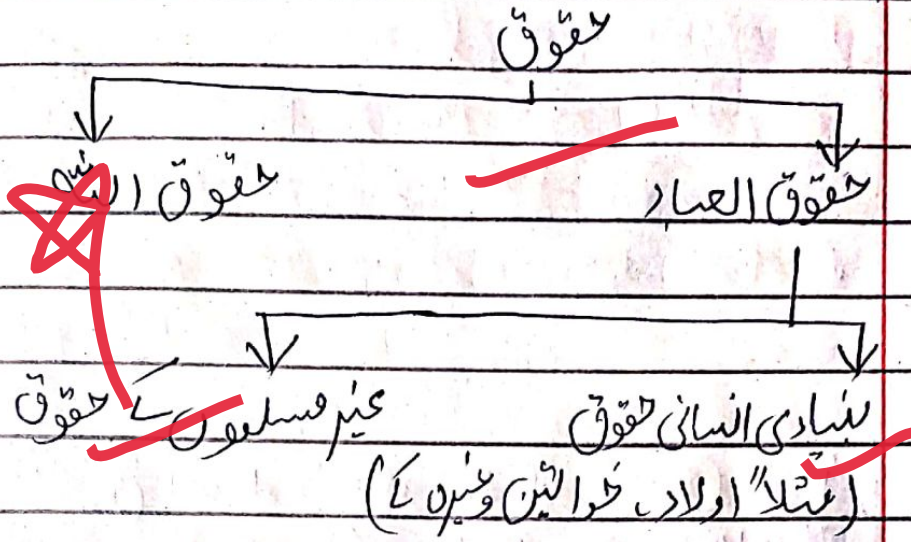 حقوق
حقوق العباد
حقوق اللہ
بنیادی انسانی حقوق
(مثلاً اولاد، خواتین وغیرہ کے)
غیر مسلموں کے حقوق